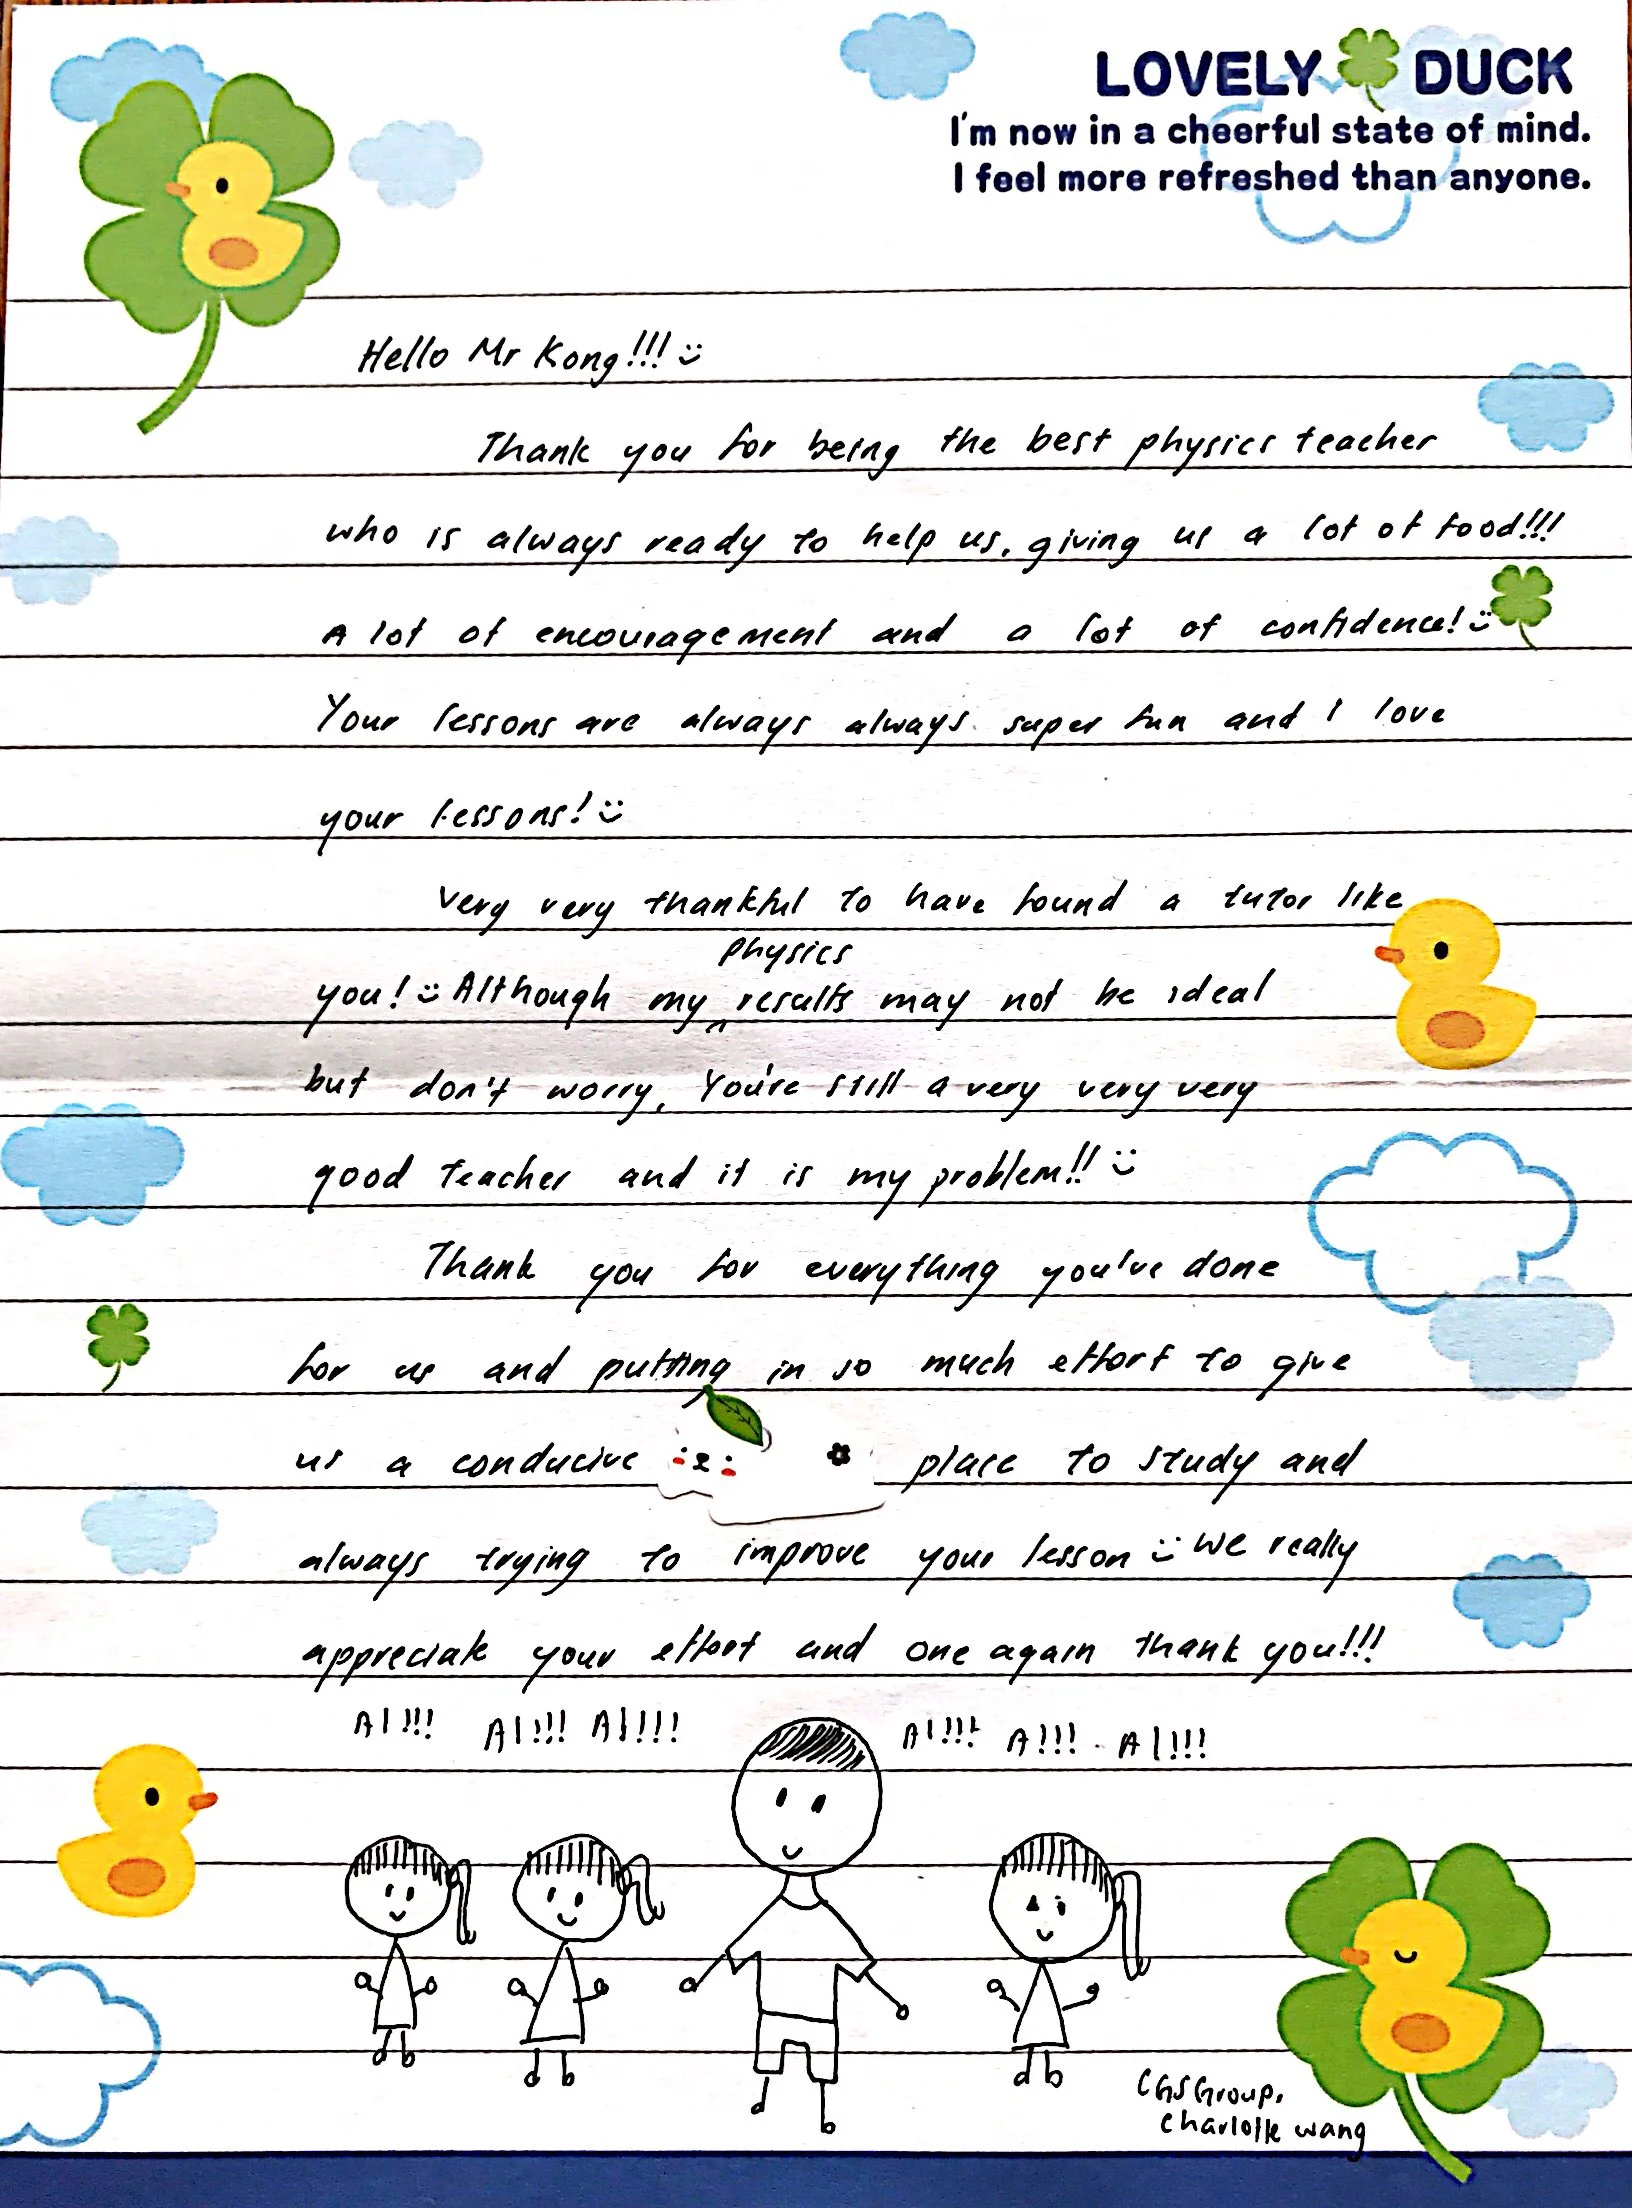 LOVELY DUCK
I'm now in a cheerful state of mind.
I feel more refreshed than anyone.
Hello Mr Kong!!! :)
Thank you for being the best physics teacher
who is always ready to help us, giving us a lot of food!!!
A lot of encouragement and a lot of confidence! :)
Your lessons are always always super fun and I love
your lessons! :)
Very very thankful to have found a tutor like
physics
you! :) Although my ^ results may not be ideal
but don't worry, You're still a very very very
good teacher and it is my problem!! :)
Thank you for everything you've done
for us and putting in so much effort to give
us a conducive place to study and
always trying to improve your lesson :) We really
appreciate your effort and one again thank you!!!
A1!!! A1!!! A1!!! A1!!! A!!! A1!!!
CGS Group,
Charlotte wang